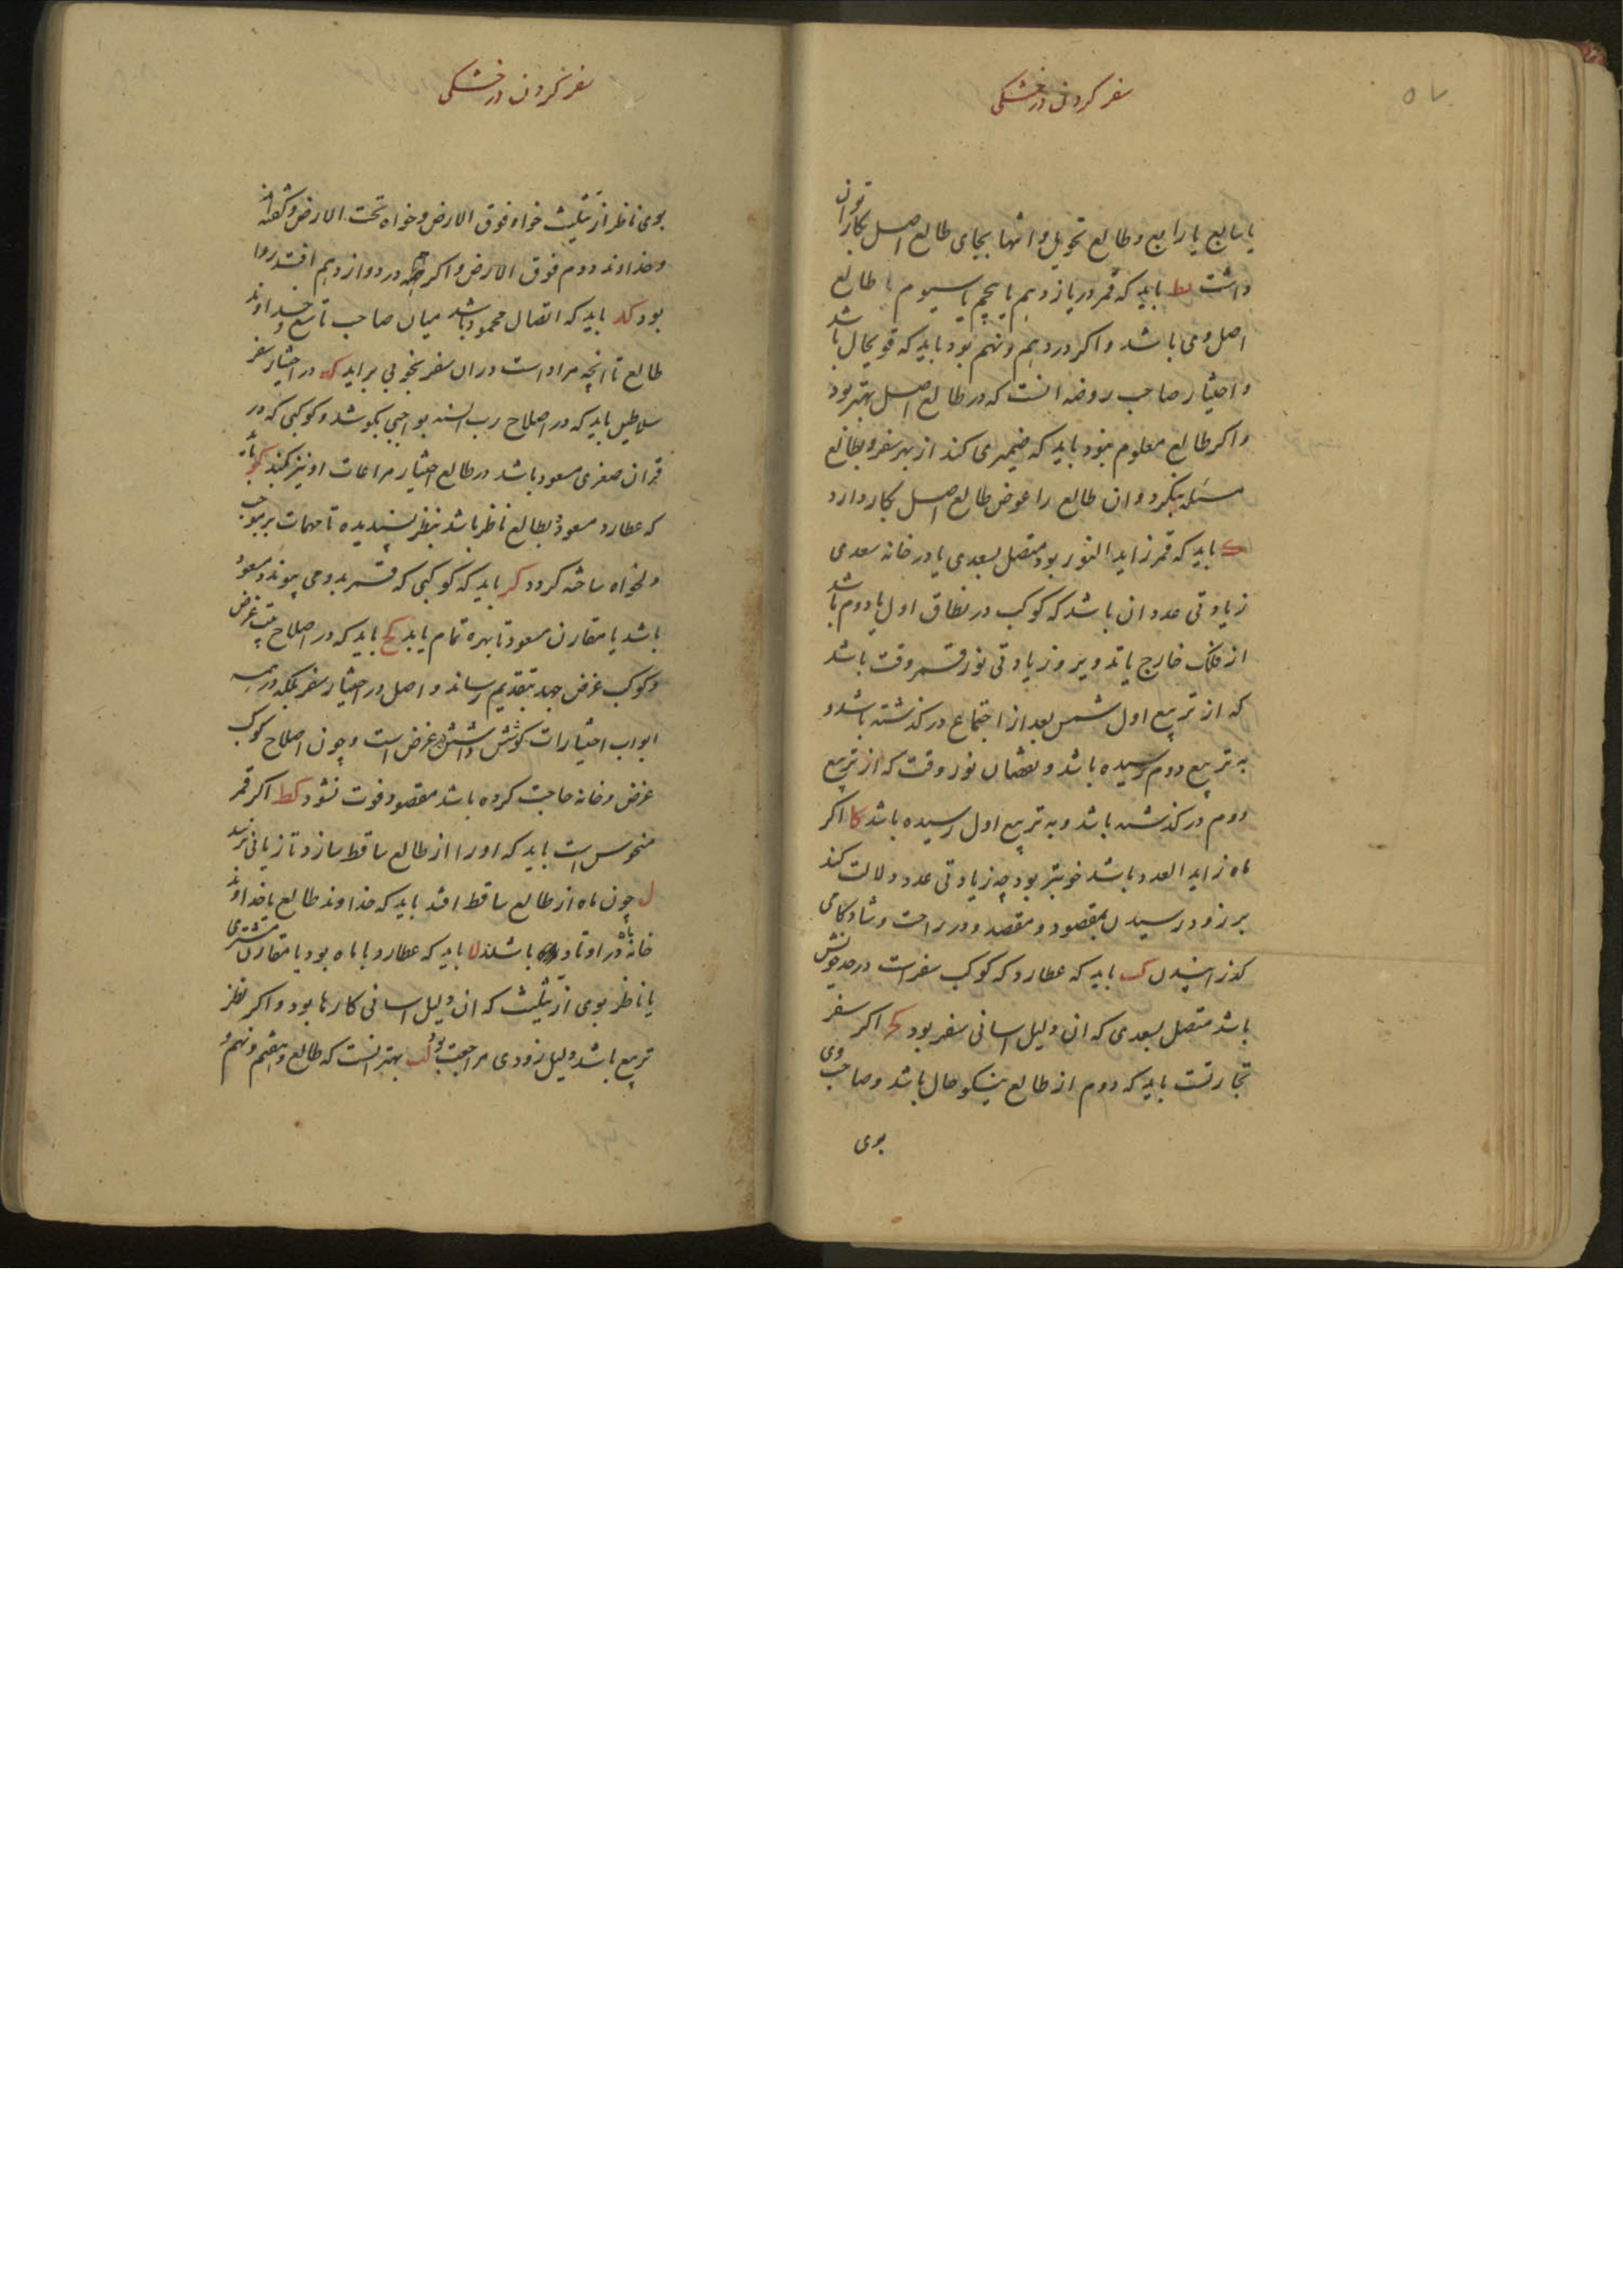 سفر کردن در خشکی
یا سابع یا رابع و طالع تحویل و انتها بجای طالع اصل بکار توان
داشت یط باید که قمر در یازدهم یا پنجم یا سیوم با طالع
اصل وی باشد و اکر در دهم و نهم بود باید که قویحال باشد
و اختیار صاحب روضه انست که در طالع اصل بهتر بود
و اکر طالع معلوم نبود باید که ضمیری کند از بهر سفر و بطالع
مسئله بنکرد و ان طالع را عوض طالع اصل بکار دارد
ک باید که قمر زاید النور بود متصل بسعدی یا در خانه سعدی
زیادتی عدد ان باشد که کوکب در نطاق اول یا دوم باشد
از فلک خارج یا تدویر و زیادتی نور قمر وقت باشد
که از تربیع اول شمس بعد از اجتماع در کذشته باشد و
به تربیع دوم رسیده باشد و نقصان نور وقت که از تربیع
دوم در کذشته باشد و به تربیع اول رسیده باشد کا اکر
ماه زاید العدد باشد خوبتر بود چه زیادتی عدد دلالت کند
بر زود رسیدن بمقصود و مقصد و در راحت و شادکامی
کذرانیدن کب باید که عطارد که کوکب سفرست در حد خویش
باشد متصل بسعدی که ان دلیل اسانی سفر بود کج اکر سفر
تجارتست باید که دوم از طالع نیکو حال باشد و صاحب وی
بوی
سفر کردن در خشکی
بوی ناظر از تثلیث خواه فوق الارض و خواه تحت الارض و کفته اند
و خداوند دوم فوق الارض و اکر چه در دوازدهم افتد روا
بود کد باید که اتصال محمود باشد میان صاحب تاسع و خداوند
طالع تا انچه مراد است در ان سفر بخوبی براید که در اختیار سفر
سلاطین باید که در اصلاح رب السنه بواجبی بکوشد و کوکبی که در
قران صغری مسعود باشد در طالع اختیار مراعات او نیز بکند کو باید
که عطارد مسعود بطالع ناظر باشد بنظر پسندیده تا مهمات بر موجب
دلخواه ساخته کردد کز باید که کوکبی که قمر بدو می پیوندد مسعود
باشد یا مقارن مسعود تا بهره تمام یابد کح باید که در اصلاح بیت غرض
و کوکب غرض جهد بتقدیم رساند و اصل در اختیار سفر بلکه در همه
ابواب اختیارات کوشش در غرض است و چون اصلاح کوکب
غرض و خانه حاجت کرده باشد مقصود فوت نشود کط اکر قمر
منحوس است باید که او را از طالع ساقط سازد تا زیانی نرسد
ل چون ماه از طالع ساقط افتد باید که خداوند طالع با خداوند
خانه ماه در اوتاد باشند لا باید که عطارد با ماه بود یا مقارن مشتری
یا ناظر بوی از تثلیث که ان دلیل اسانی کارها بود و اکر نظر
تربیع باشد دلیل زودی مراجعت بود لب بهتر انست که طالع و هفتم و نهم